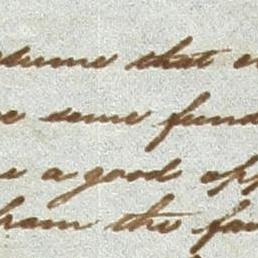 sume that e
e same fund
e a good opp
ham the fa